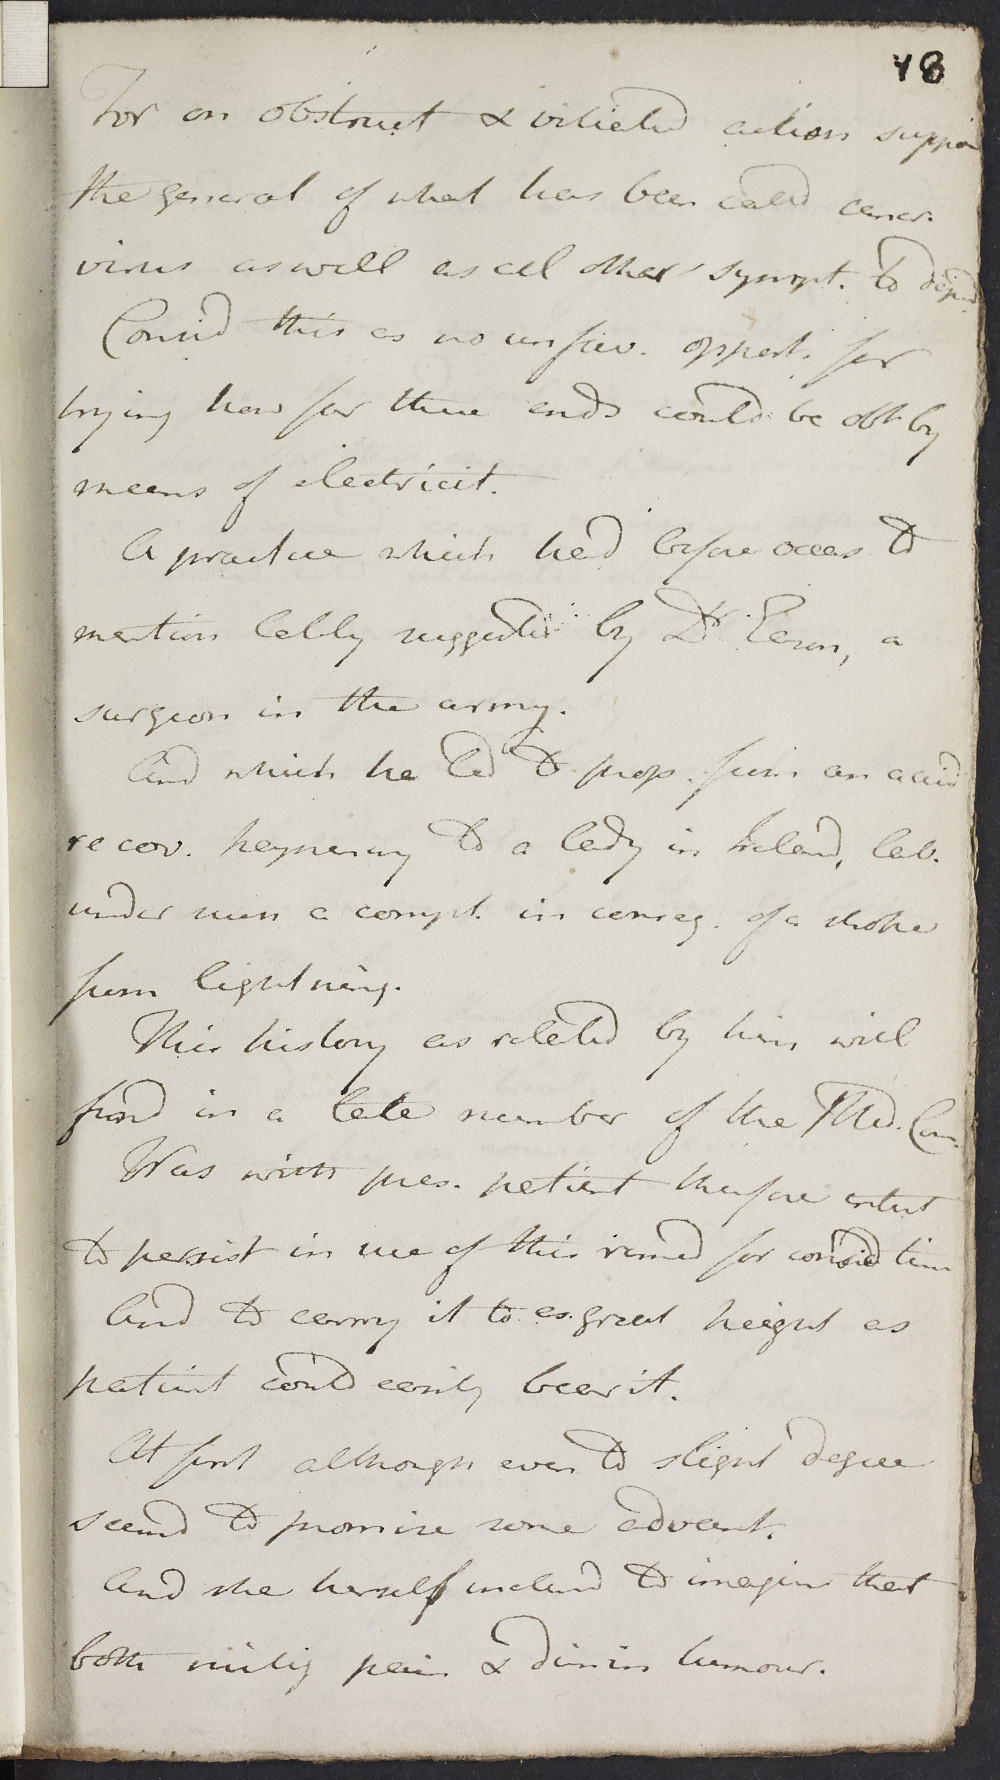 48
For on obstruct & vitiated action suppos
the general of what has been calld cancr.
virus as well as all other sympt. to depend
Consid this as no unfav. opport. for
trying how far these ends could be obt. by
means of electricit.
A practice which had before occas to
mention lately suggested by Dr Eason, a
surgeon in the army.
And which he led to prop. from an accid
recov. happening to a lady in Ireland, lab.
under such a compt. in conseq. of a stroke
from lightning.
This history as related by him will
found in a late number of the Med. Com.
Was with pres. patient therefore intent
to persist in use of this remed for consid time
And to carry it to as great height as
patient could easily bear it.
At first although even to slight degree
seemd to promise some advant.
And she herself inclind to imagine that
both mitig pain & dimin tumour.